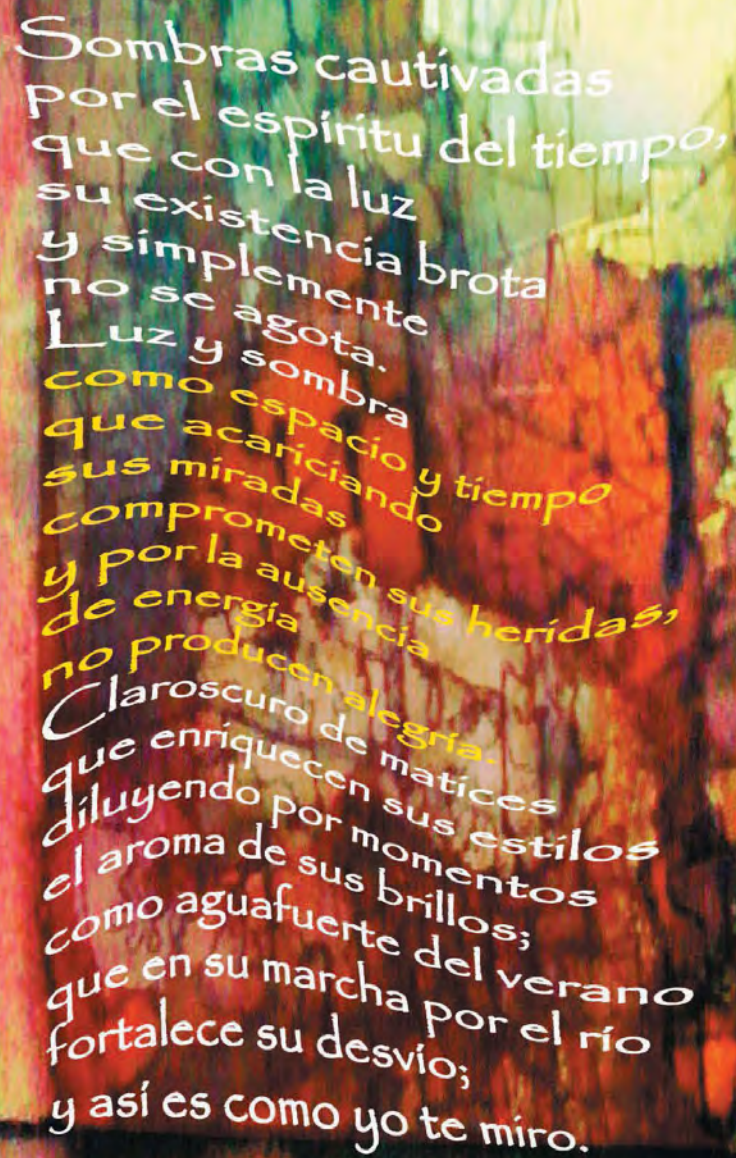 Sombras cautivadas
por el espíritu del tiempo,
que con la luz
su existencia brota
y simplemente
no se agota.
Luz y sombra
como espacio y tiempo
que acariciando
sus miradas
comprometen sus heridas,
y por la ausencia
de energía
no producen alegría.
Claroscuro de matices
que enriquecen sus estilos
diluyendo por momentos
el aroma de sus brillos;
como aguafuerte del verano
que en su marcha por el río
fortalece su desvío;
y así es como yo te miro.